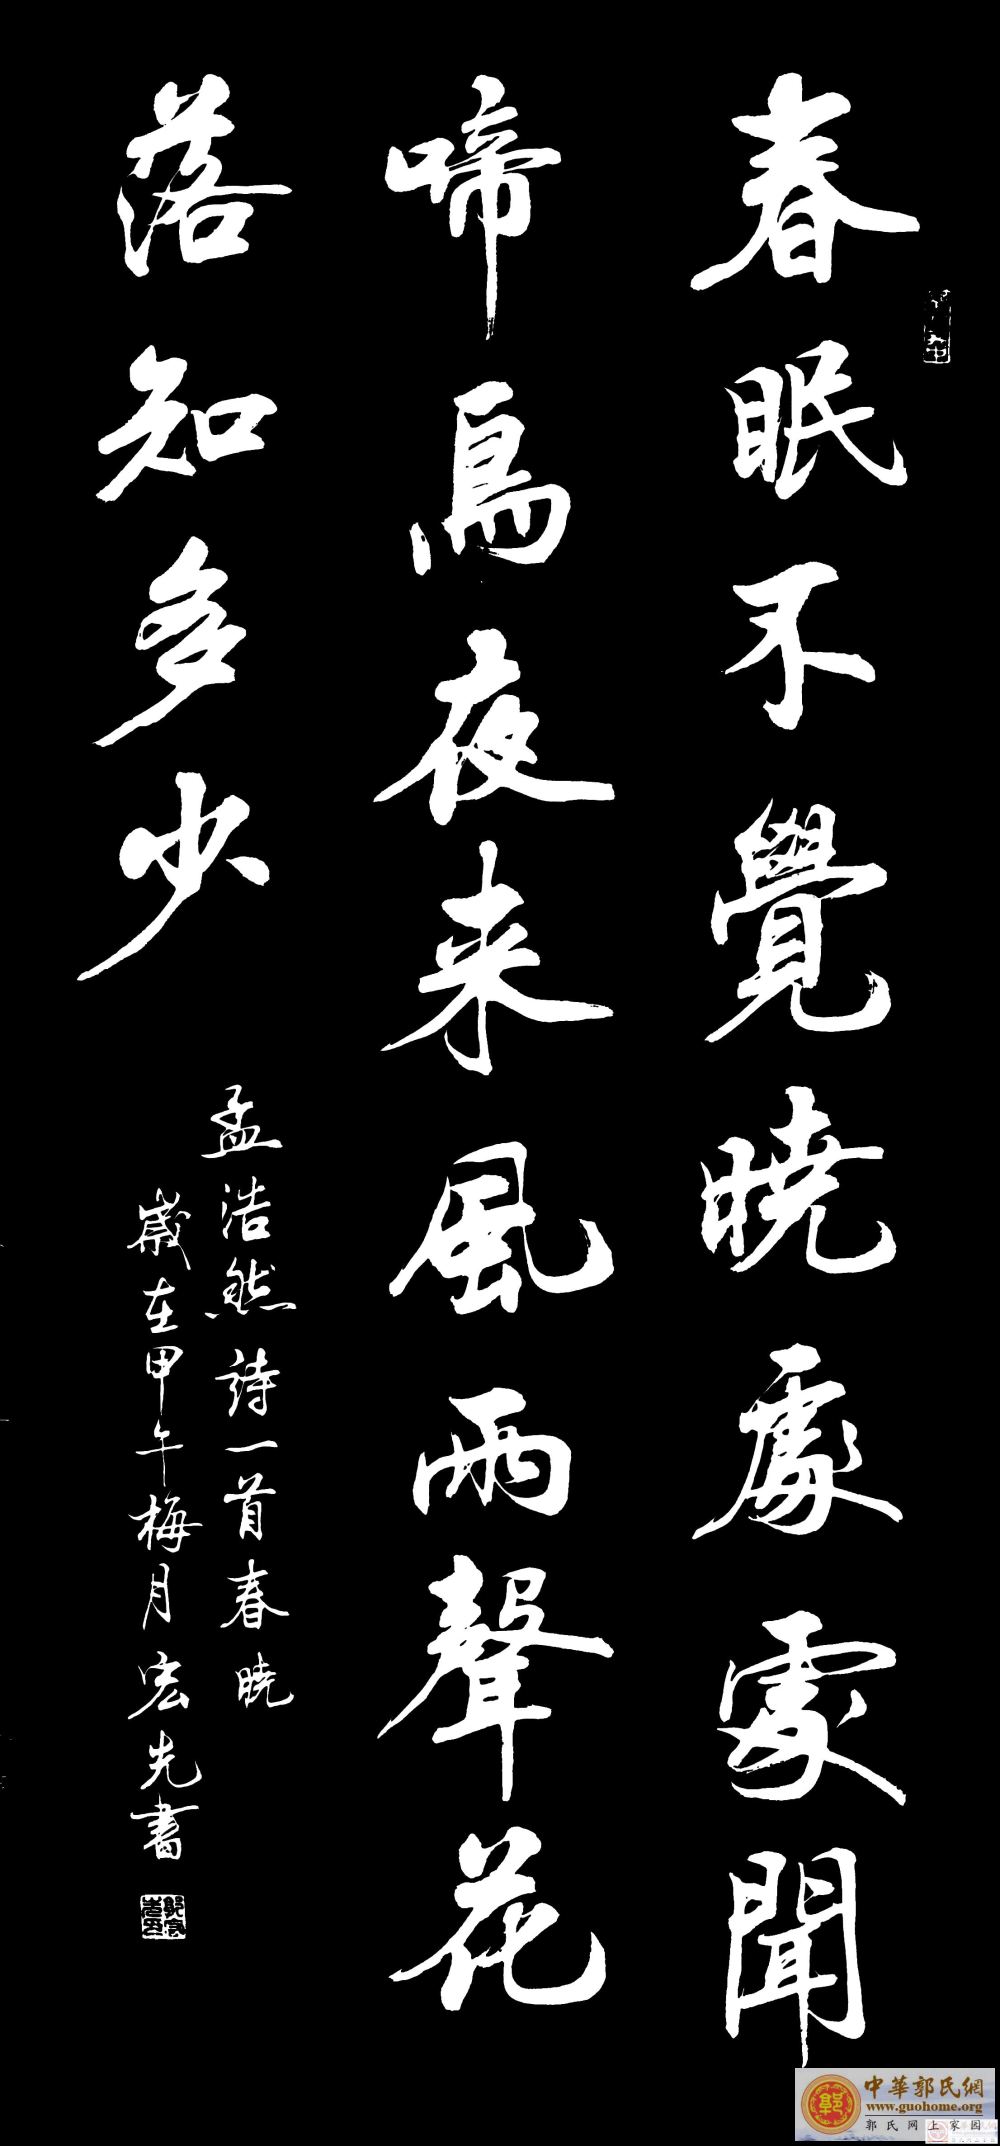 春眠不覺曉處處聞
啼鳥夜来風雨聲花
落知多少
孟浩然詩一首春曉
歲在甲午梅月宏先書
中華郭氏網
www.guohome.org
郭氏网上家园